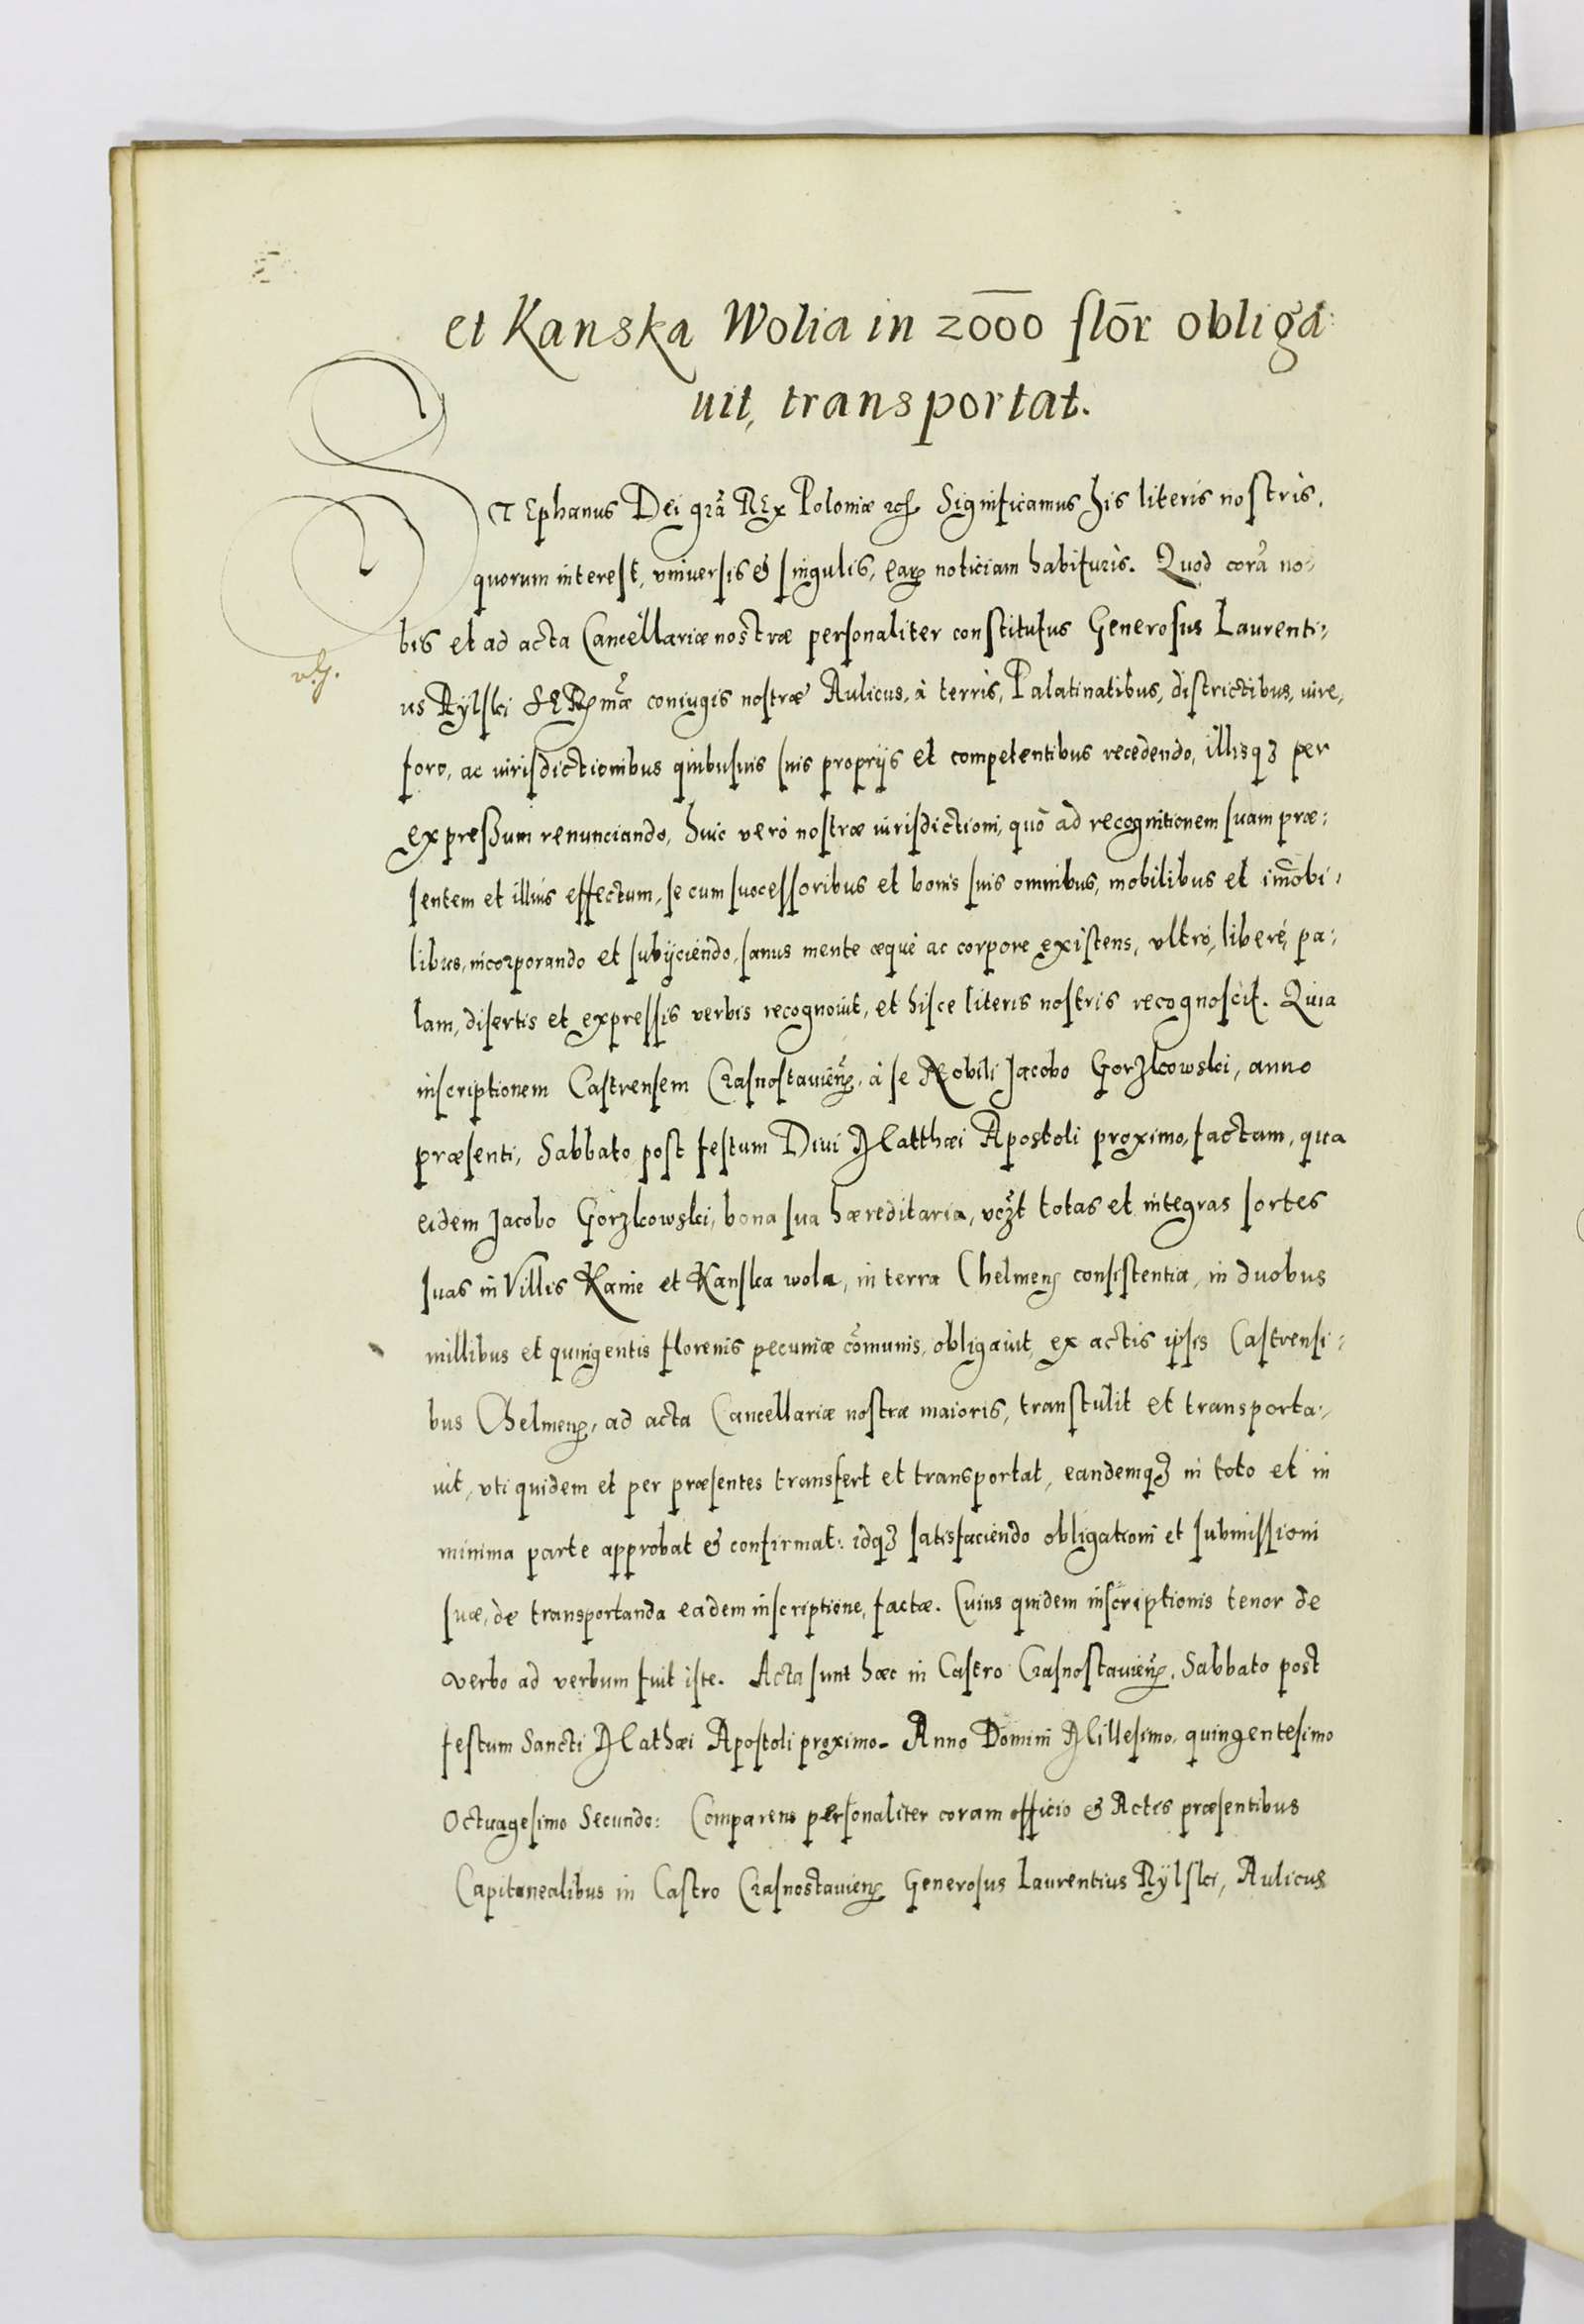 et Kanska Wolia in 2000 flor̄ obliga:
uit, transportat.
STEphanus Dei grã REx Poloniæ etc. Significamus his literis nostris,
quorum interest, vniuersis & singulis, earꝫ noticiam habituris. Quod corã no-
bis et ad acta Cancellariæ nostræ personaliter constitutus Generosus Laurenti-
us Rÿlski SERmæ coniugis nostræ Aulicus, à terris, Palatinatibus, districtibus, iure,
foro, ac iurisdictionibus quibusuis suis proprijs et competentibus recedendo, illisqꝫ per
expressum renunciando, huic verò nostræ iurisdictioni, quò ad recognitionem suam præ-
sentem et illius effectum, se cum successoribus et bonis suis omnibus, mobilibus et im̄obi-
libus, incorporando et subijciendo, sanus mente æquè ac corpore existens, vltrò, liberè, pa-
lam, disertis et expressis verbis recognouit, et hisce literis nostris recognoscit. Quia
inscriptionem Castrensem Crasnostauieñ, à se Nobili Jacobo Gorzkowski, anno
præsenti, Sabbato post festum Diui Matthæi Apostoli proximo, factam, qua
eidem Jacobo Gorzkowski, bona sua hæreditaria, vczt totas et integras sortes
suas in Villis Kanie et Kanska wola, in terra Chelmeñ consistentia, in duobus
millibus et quingentis florenis pecuniæ cõmunis, obligauit, ex actis ipsis Castrensi-
bus Chelmeñ, ad acta Cancellariæ nostræ maioris, transtulit et transporta-
uit, vti quidem et per præsentes transfert et transportat, eandemqꝫ in toto et in
minima parte approbat & confirmat: idqꝫ satisfaciendo obligationi et submissioni
suæ, de transportanda eadem inscriptione, factæ. Cuius quidem inscriptionis tenor de
verbo ad verbum fuit iste. Acta sunt hæc in Castro Crasnostauieñ, Sabbato post
festum Sancti Mathæi Apostoli proximo. Anno Domini Millesimo, quingentesimo
Octuagesimo Secundo: Comparens personaliter coram officio & Actis præsentibus
Capitanealibus in Castro Crasnostauieñ Generosus Laurentius Rÿlski, Aulicus